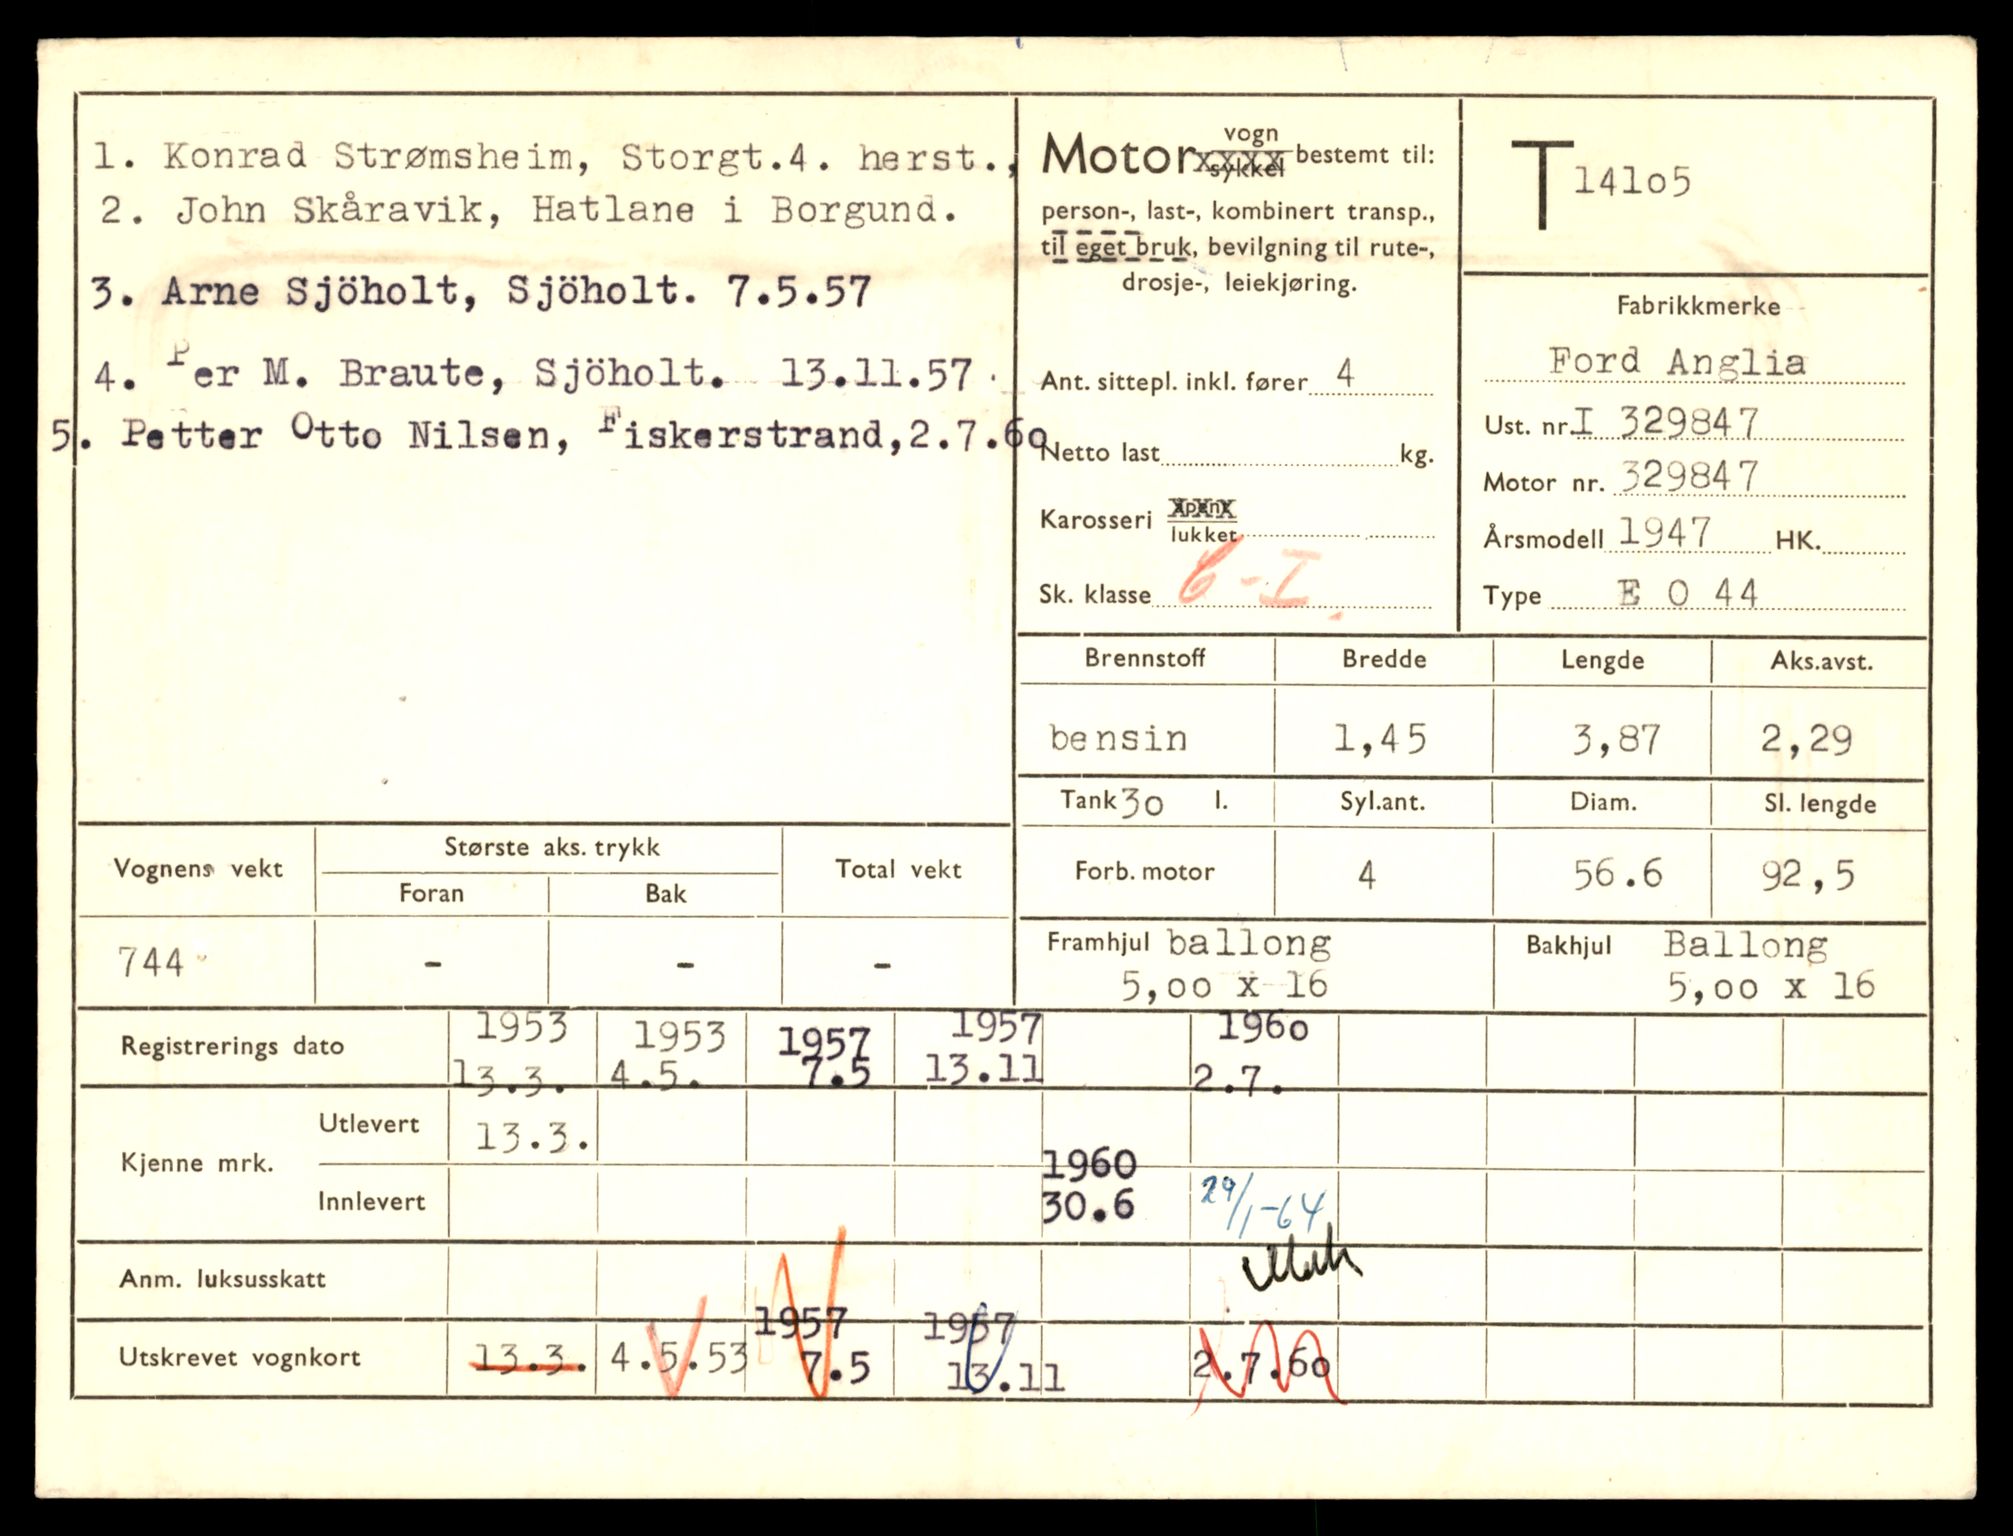 1. Konrad Strømsheim, Storgt.4. herst.,
2. John Skåravik, Hatlane i Borgund.
3. Arne Sjöholt, Sjöholt. 7.5.57
4. Per M. Braute, Sjöholt. 13.11.57
5. Petter Otto Nilsen, Fiskerstrand,2.7.6o
Motor vogn sykkel bestemt til:
person-, last-, kombinert transp.,
til eget bruk, bevilgning til rute-,
drosje-, leiekjøring.
Ant. sittepl. inkl. fører 4
Netto last kg.
Karosseri åpen
lukket
Sk. klasse 6-I
T 141o5
Fabrikkmerke
Ford Anglia
Ust. nr. I 329847
Motor nr. 329847
Årsmodell 1947 HK.
Type E O 44
Brennstoff Bredde Lengde Aks.avst.
bensin 1,45 3,87 2,29
Tank 3o l. Syl.ant. Diam. Sl. lengde
Forb. motor 4 56.6 92,5
Framhjul ballong Bakhjul Ballong
5,oo x 16 5,oo x 16
Vognens vekt Største aks. trykk Total vekt
Foran Bak
744 - - -
1953 1953 1957 1957 196o
Registrerings dato
13.3. 4.5. 7.5 13.11 2.7.
Kjenne mrk. Utlevert 13.3.
1960
Innlevert 30.6 29/1-64
Anm. luksusskatt
1957 1957
Utskrevet vognkort 13.3. 4.5.53 7.5 13.11 2.7.6o